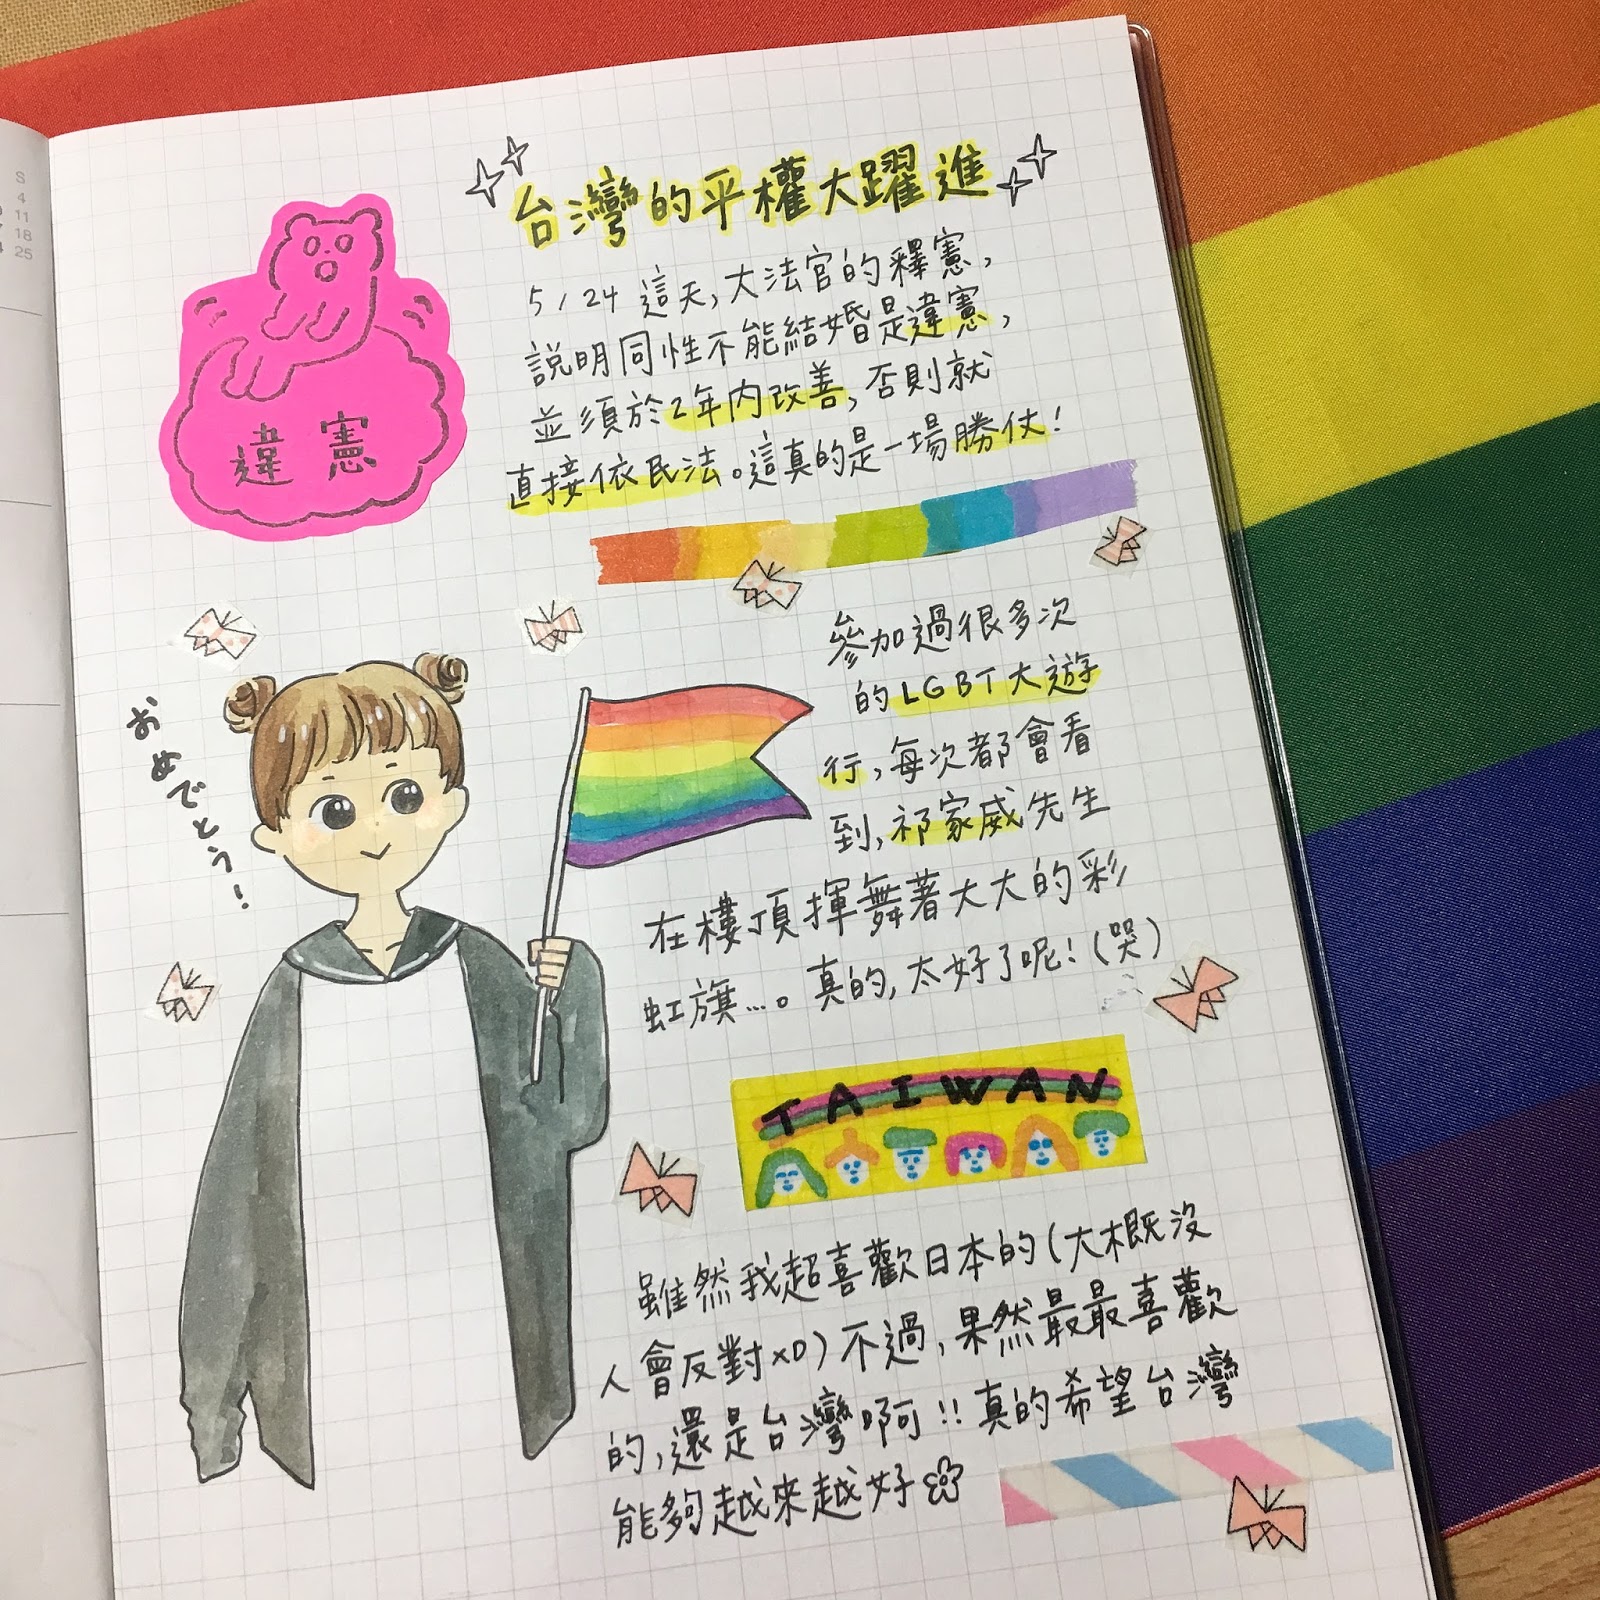 S
4
11
18
25
台灣的平權大躍進
5/24 這天,大法官的釋憲,
說明同性不能結婚是違憲,
並須於2年內改善,否則就
直接依民法。這真的是一場勝仗!
違憲
おめでとう!
參加過很多次
的LGBT大遊
行,每次都會看
到,祁家威先生
在樓頂揮舞著大大的彩
虹旗…。真的,太好了呢!(哭)
TAIWAN
雖然我超喜歡日本的(大概沒
人會反對XD)不過,果然最最喜歡
的,還是台灣啊!!真的希望台灣
能夠越來越好